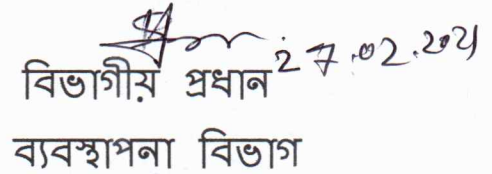 27.02.2021
বিভাগীয় প্রধান
ব্যবস্থাপনা বিভাগ